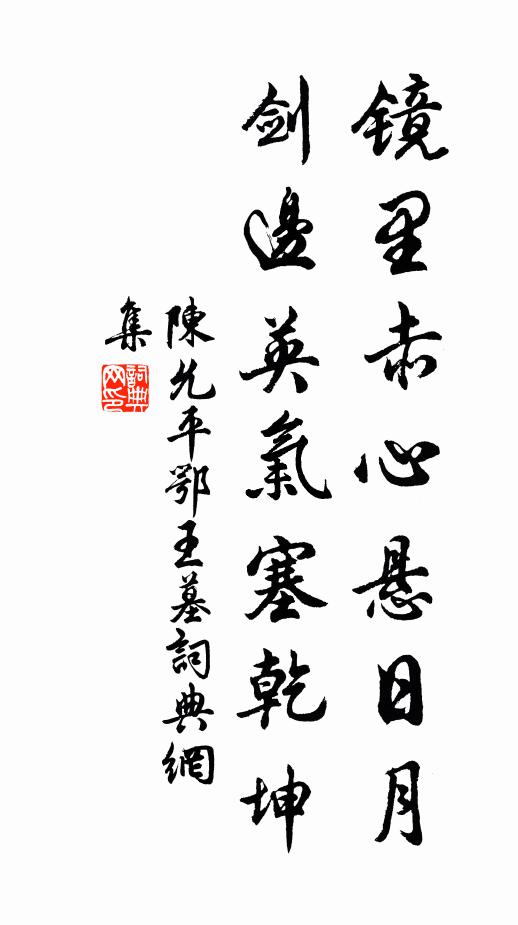 镜里赤心悬日月
剑邊英氣塞乾坤
陳允平鄂王墓詞典網
集
詞典
网印